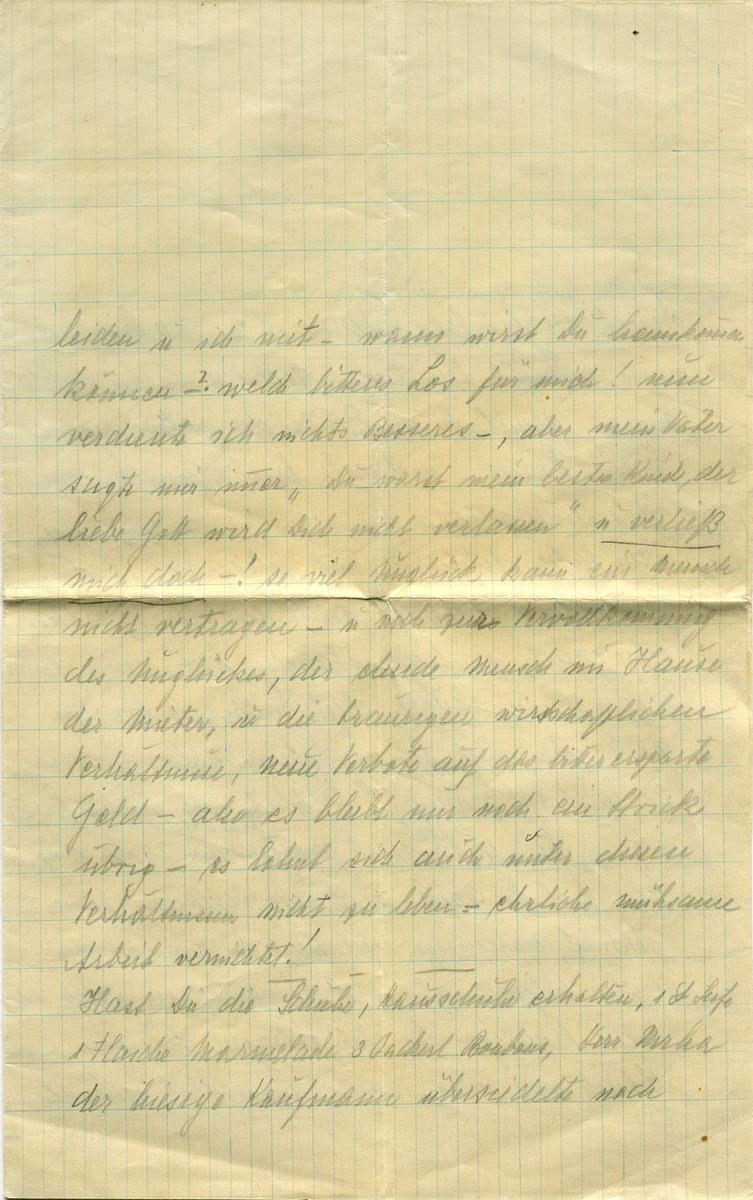 leiden u ich mit – wann wirst Du heimkommen
können ? welch bitteres Los für mich ! nun
verdiente ich nichts Besseres –, aber mein Vater
sagte mir immer „ Du warst mein bestes Kind, der
liebe Gott wird Dich nicht verlassen “ u verließ
mich doch – ! so viel Unglück kann ein Mensch
nicht vertragen – u noch zur Vervollkommnung
des Unglückes, der elende Mensch im Hause
der Mieter, u die traurigen wirtschaftlichen
Verhältnisse, neue Verbote auf das bitter ersparte
Geld – also es bleibt nur noch ein Strick
übrig – es lohnt sich auch unter diesen
Verhältnissen nicht zu leben = ehrliche mühsame
Arbeit vernichtet !
Hast Du die Schuhe, Hausschuhe erhalten, 1 St Seife
1 Flasche Marmelade 3 Packerl Bonbons, Herr
der hiesige Kaufmann übersiedelte nach